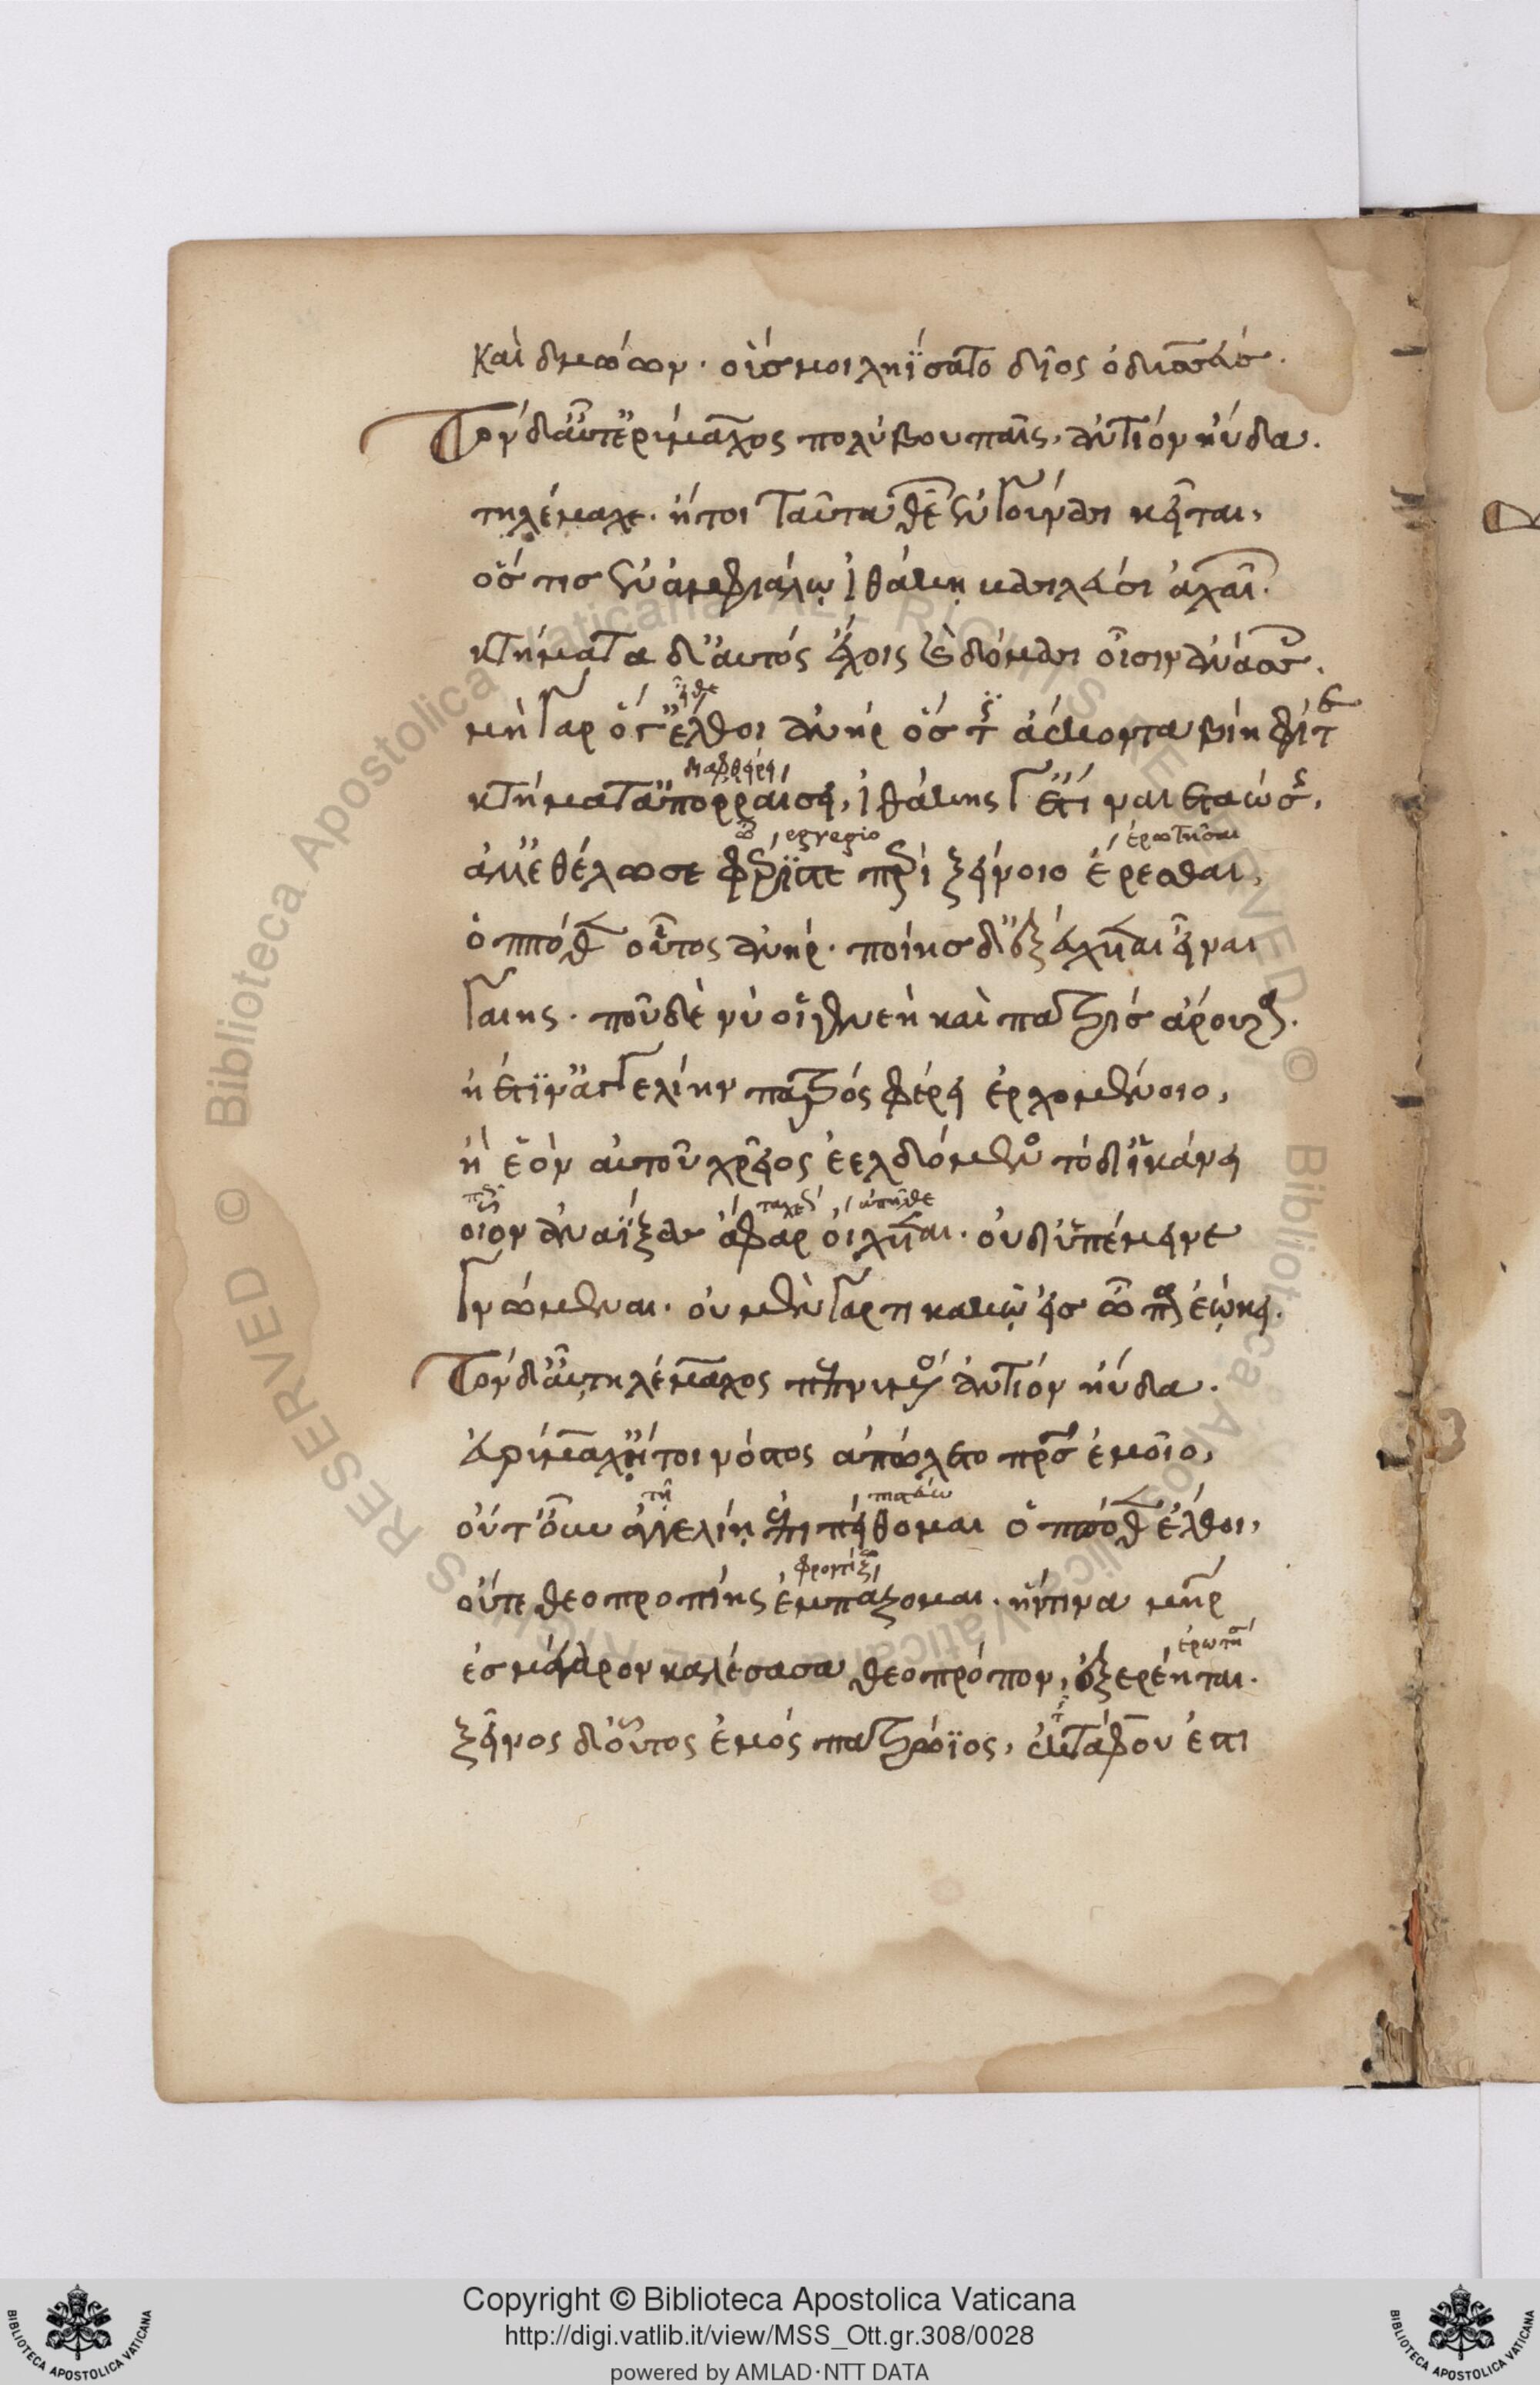 καὶ δμώων· οὕς μοι ληΐσατο δῖος ὀδυσσεύς.
Τὸν δ' αὖτ' εὐρύμαχος πολύβου παῖς, ἀντίον ηὔδα.
τηλέμαχ'· ἤτοι ταῦτα θεῶν ἐν γούνασι κεῖται,
ὅς τις ἐν ἀμφιάλῳ ἰθάκῃ βασιλεύσει ἀχαιῶν.
κτήματα δ' αὐτὸς ἔχοις καὶ δώμασι οἷσιν ἀνάσσοις.
μὴ γὰρ ὅγ' ἔλθοι ἀνὴρ ὅς τις σ' ἀέκοντα βίηφι
κτήματ' ἀπορραίσει, ἰθάκης γ' ἔτι ναιεταώσης,
egregio
ἐρωτῆσαι
ἀλλ' ἐθέλω σε φέριστε περὶ ξείνοιο ἔρεσθαι,
ὁππόθεν οὗτος ἀνήρ· ποίης δ' ἐξ εὔχεται εἶναι
γαίης· ποῦ δέ νύ οἱ γενεὴ καὶ πατρὶς ἄρουρα.
ἠέ τιν' ἀγγελίην πατρὸς φέρει ἐρχομένοιο,
ἢ ἑὸν αὐτοῦ χρεῖος ἐελδόμενος τόδ' ἱκάνει
οἷον ἀναΐξας ἄφαρ οἴχεται· οὐδ' ὑπέμεινε
γνώμεναι· οὐ μὲν γάρ τι κακῷ εἰς ὦπα ἐῴκει.
Τὸν δ' αὖ τηλέμαχος πεπνυμένος ἀντίον ηὔδα.
εὐρύμαχ' ἤτοι νόστος ἀπώλετο πατρὸς ἐμοῖο,
οὔτ' οὖν ἀγγελίῃ ἔτι πείθομαι ὅ ποθεν ἔλθοι,
οὔτε θεοπροπίης ἐμπάζομαι· ἥντινα μήτηρ
ἐς μέγαρον καλέσασα θεοπρόπον, ἐξερέηται.
ξεῖνος δ' οὗτος ἐμὸς πατρώϊος, ἐκ τάφου ἐστι
Copyright © Biblioteca Apostolica Vaticana
http://digi.vatlib.it/view/MSS_Ott.gr.308/0028
powered by AMLAD·NTT DATA